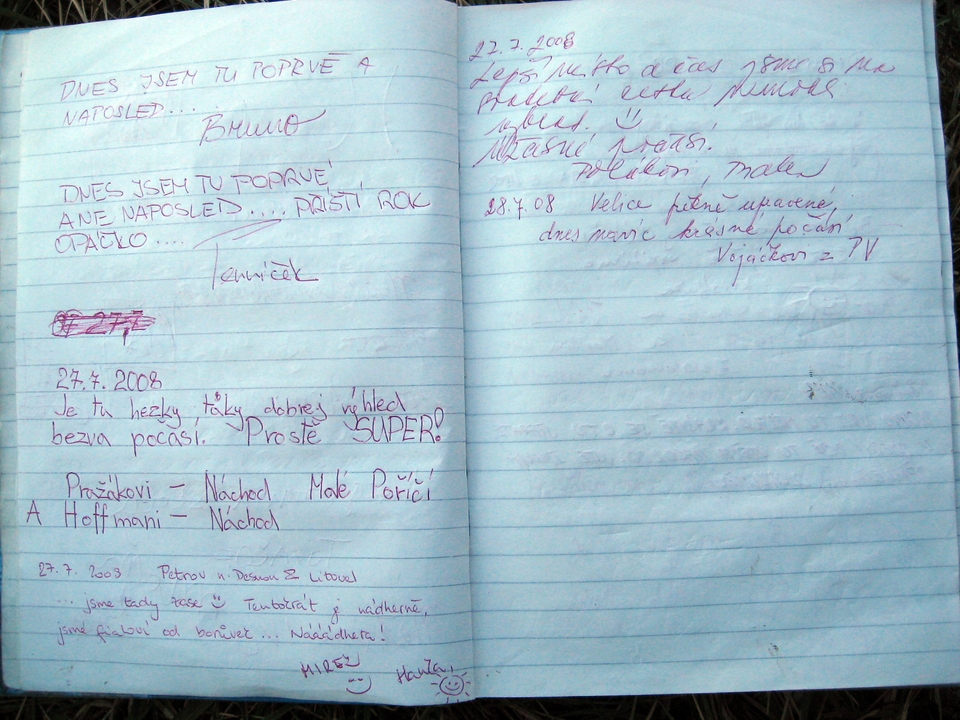 DNES JSEM TU POPRVÉ A
NAPOSLED...
BRUNO
DNES JSEM TU POPRVÉ
A NE NAPOSLED.... PŘÍŠTÍ ROK
OPÁČKO....
27.7. 2008
Je tu hezky, táky dobrej výhled
bezva počasí. Prostě SUPER!
Pražákovi - Náchod Malé Poříčí
A Hoffmani - Náchod
27.7. 2008 Petrov n. Desnou & Litovel
... jsme tady zase Tentokrát je nádherně,
jsme fialoví od borůvek... Nááádhera!
MIREK
Hanka
27.7. 2008
Lepší místo a čas jsme si na
Úžasné počasí.
28.7.08 Velice pěkně upravené,
dnes navíc krásné počasí
Vojáčkovi z PV